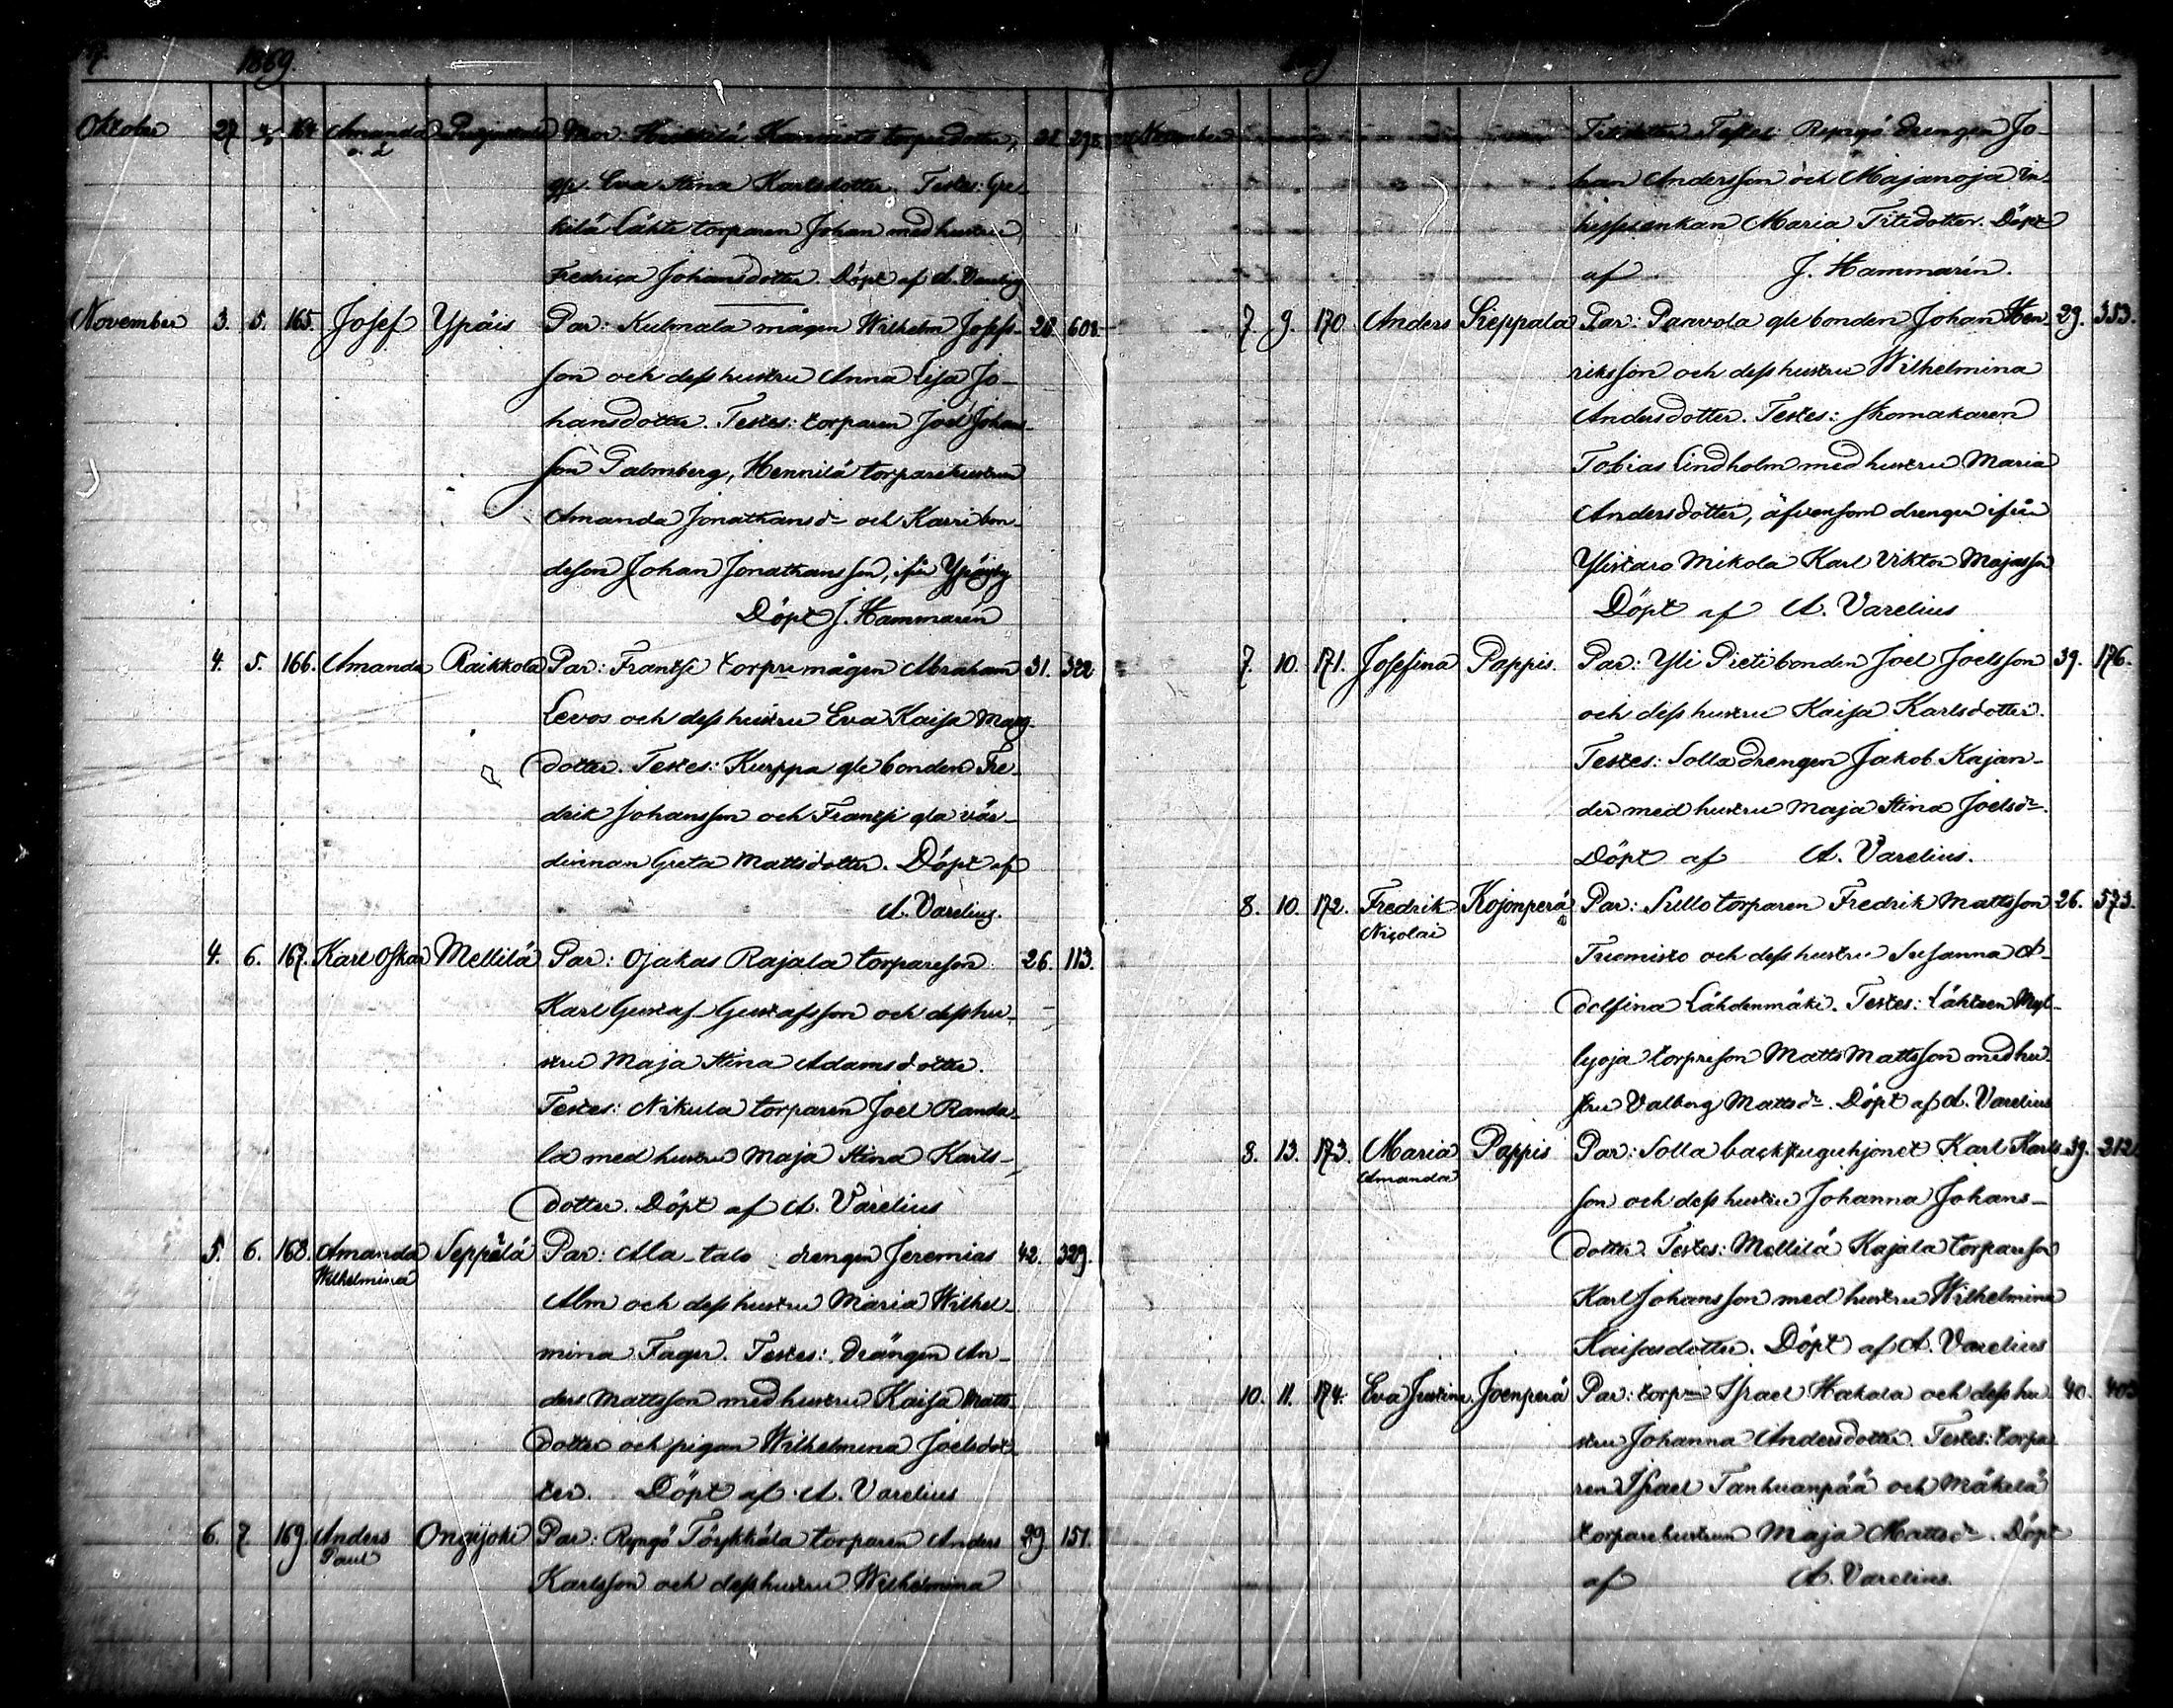 1869.
Oktober 27 164 Amanda Mor: Torpedotter,
o. ä
Eva Stina Karlsdotter. Testes: Gre-
kilä Lähte torparen Johan med hustru
Fredrica Johansdotter. Döpt af A.
November 3. 5. 165. Josef Ypäis Par: Kulmala mågen Wilhelm Josefs- 28 608
son och dess hustru Anna Lisa Jo-
hansdotter. Testes: torparen Joel Johans
son Palmberg, Hennilä torparehustrun
Amanda Jonathansdr och Karri bon-
deson Johan Jonathansson, ifrån Ypäjby
Döpt J. Hammarén
4. 5. 166. Amanda Raikkola Par: Frantsi torpremågen Abraham 31. 322
Levos och dess hustru Eva Kaisa Matts-
dotter. Testes: Kurppa gle bonden Fre-
drik Johansson och Frantsi gla vär-
dinnan Greta Mattsdotter. Döpt af
A. Varelius.
4. 6. 167. Karl Oskar Mellilä Par: Ojakas Rajala torpareson 26. 113.
Karl Gustaf Gustafsson och dess hu-
stru Maja Stina Adamsdotter.
Testes: Nikula torparen Joel Randa-
la med hustru Maja Stina Karls-
dotter. Döpt af A. Varelius
5. 6. 168. Amanda Seppälä Par: Ala-talo drengen Jeremias 42. 329.
Wilhelmina
Alm och dess hustru Maria Wilhel-
mina Fager. Testes: drängen An-
ders Mattsson med hustru Kaisa Matts-
dotter och pigan Wilhelmina Joelsdot-
ter. Döpt af A. Varelius
6. 7. 169. Anders Ongijoki Par: Ryngö Töykkälä torparen Anders 29. 151.
Paul
Karlsson och dess hustru Wilhelmina
November Titisdotter. Testes: Ryngö drengen Jo-
han Andersson och Majanoja in-
hysesenkan Maria Titisdotter. Döpt
af J. Hammarén.
7. 9. 170. Anders Sieppala Par: Parvola gle bonden Johan Hen- 29. 353.
riksson och dess hustru Wilhelmina
Andersdotter. Testes: skomakaren
Tobias Lindholm med hustru Maria
Andersdotter, äfvensom drengen ifrån
Ylistaro Mikola Karl Viktor Majasson
Döpt af A. Varelius
7. 10. 171. Josefina Pappis. Par: Yli Pieti bonden Joel Joelsson 39. 176.
och dess hustru Kaisa Karlsdotter.
Testes: Solla drengen Jakob Kajan-
der med hustru Maja Stina Joelsdr.
Döpt af A. Varelius.
8. 10. 172. Fredrik Kojonperä Par: Sullo torparen Fredrik Mattsson 26. 573.
Nicolai
Tuomisto och dess hustru Susanna A-
dolfina Lähdenmäki. Testes: Lähteen Myl-
lyoja torpreson Matts Mattsson med hu-
stru Valborg Mattsdr. Döpt af A. Varelius
8. 13. 173. Maria Pappis Par: Solla backstuguhjonet Karl Karls 39. 212
Amanda
son och dess hustru Johanna Johans-
dotter. Testes: Mellilä Kajala torpareson
Karl Johansson med hustru Wilhelmina
Kaisasdotter. Döpt af A. Varelius
10. 11. 174. Eva Justina Joenperä Par: torpren Israel Hakala och dess hu 40. 403
stru Johanna Andersdotter. Testes: torpa
ren Israel Tanhuanpää och Mäkelä
torparehustrun Maja Mattsdr. Döpt
af A. Varelius.